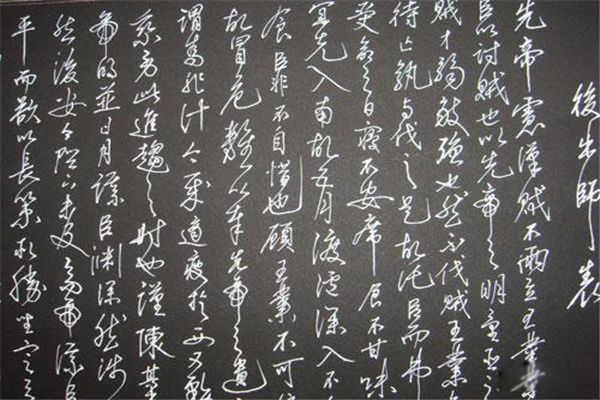 後出師表
先帝慮漢賊不兩立王業
臣以討賊也以先帝之明量臣之
賊才弱敵強也然不伐賊王業
待亡孰與伐之是故託臣而弗
受命之日寢不安席食不甘味
宜先入南故五月渡瀘深入不
食臣非不自惜也顧王業不可
故冒危難以奉先帝之遺
謂為非計今賊適疲於西又
勞此進趨之時也謹陳其
帝明並日月謀臣淵深然涉
然後安今陛下未及高帝謀臣
平而欲以長策取勝坐定天